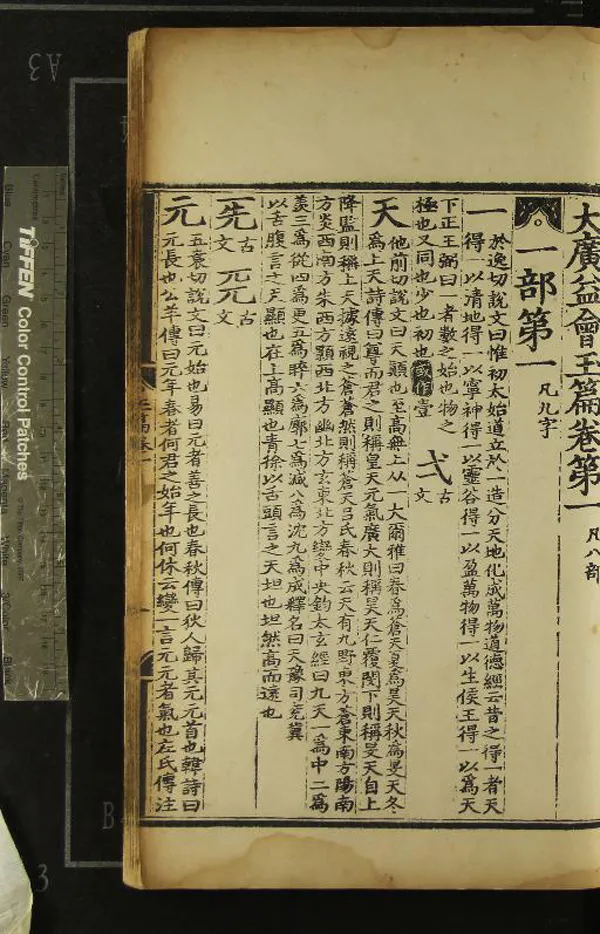 大廣益會玉篇卷第一 凡八部
一部第一 凡九字
一 於逸切說文曰惟初太始道立於一造分天地化成萬物道德經云昔之得一者天
得一以清地得一以寧神得一以靈谷得一以盈萬物得一以生侯王得一以爲天
下正王弼曰一者數之始也物之
極也又同也少也初也或作壹
弌 古文
天 他前切說文曰天顚也至高無上从一大爾雅曰春爲蒼天夏爲昊天秋爲旻天冬
爲上天詩傳曰尊而君之則稱皇天元氣廣大則稱昊天仁覆閔下則稱旻天自上
降監則稱上天據遠視之蒼蒼然則稱蒼天呂氏春秋云天有九野東方蒼東南方陽南
方炎西南方朱西方顥西北方幽北方玄東北方變中央鈞太玄經曰九天一爲中二爲
羨三爲從四爲更五爲睟六爲廓七爲減八爲沈九爲成釋名曰天豫司兗冀
以舌腹言之天顯也在上高顯也青徐以舌頭言之天坦也坦然高而遠也
古文
古文
元 五袁切說文曰元始也易曰元者善之長也春秋傳曰狄人歸其元元首也韓詩曰
元長也公羊傳曰元年春者何君之始年也何休云變一言元元者氣也左氏傳注
TIFFEN Color Control Patches
Blue
Cyan
Green
Yellow
Red
Magenta
White
Black
A3
B
3